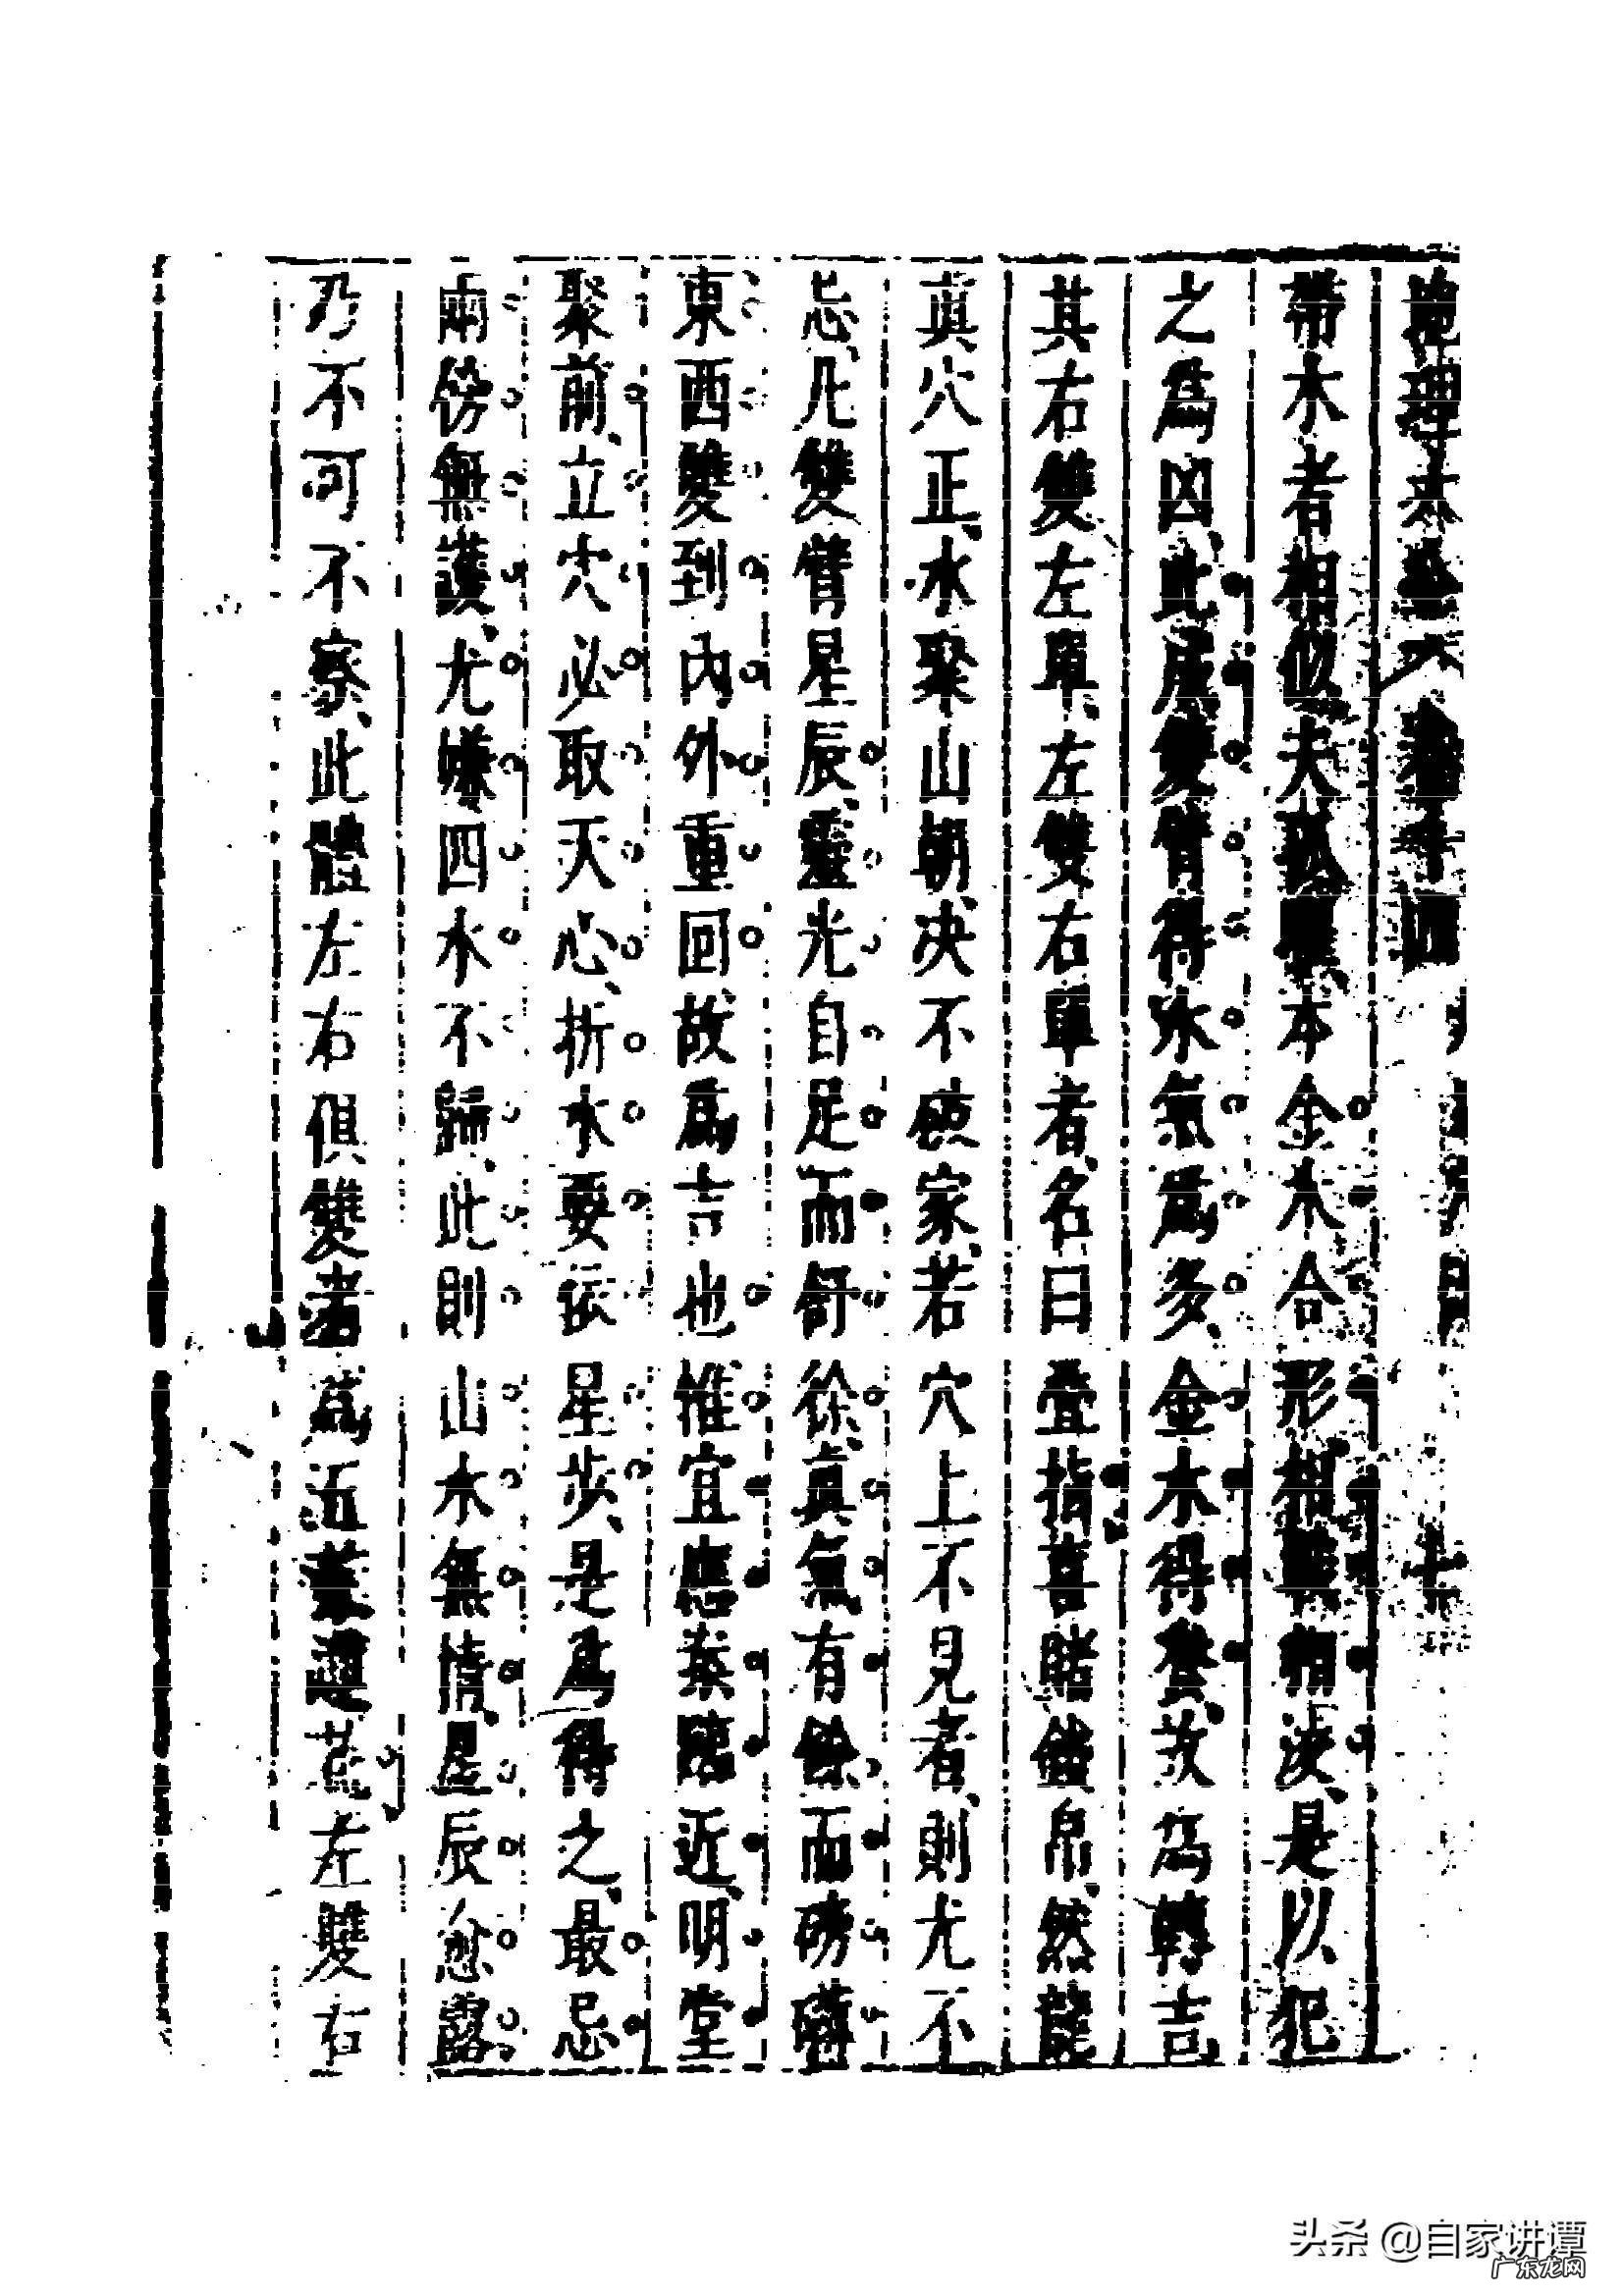 地理大全 卷十四
帶木者相似夫孤曜本金木合形相戰相決是以犯
之爲凶此屬雙臂得水氣爲多金水得養故爲轉吉
其右雙左單左雙右單者名曰疊指喜賭錢帛然龍
真穴正水聚山朝决不破家若穴上不見者則尤不
忌凡雙臂星辰靈光自足而舒徐真氣有餘而磅礴
東西雙到內外重回故爲吉也惟宜應案臨近明堂
聚前立穴必取天心折水要依星步是爲得之最忌
兩傍無護尤嫌四水不歸此則山水無情星辰愈露
乃不可不察此體左右俱雙者爲 左雙右
头条 @自家讲谭
广东龙网